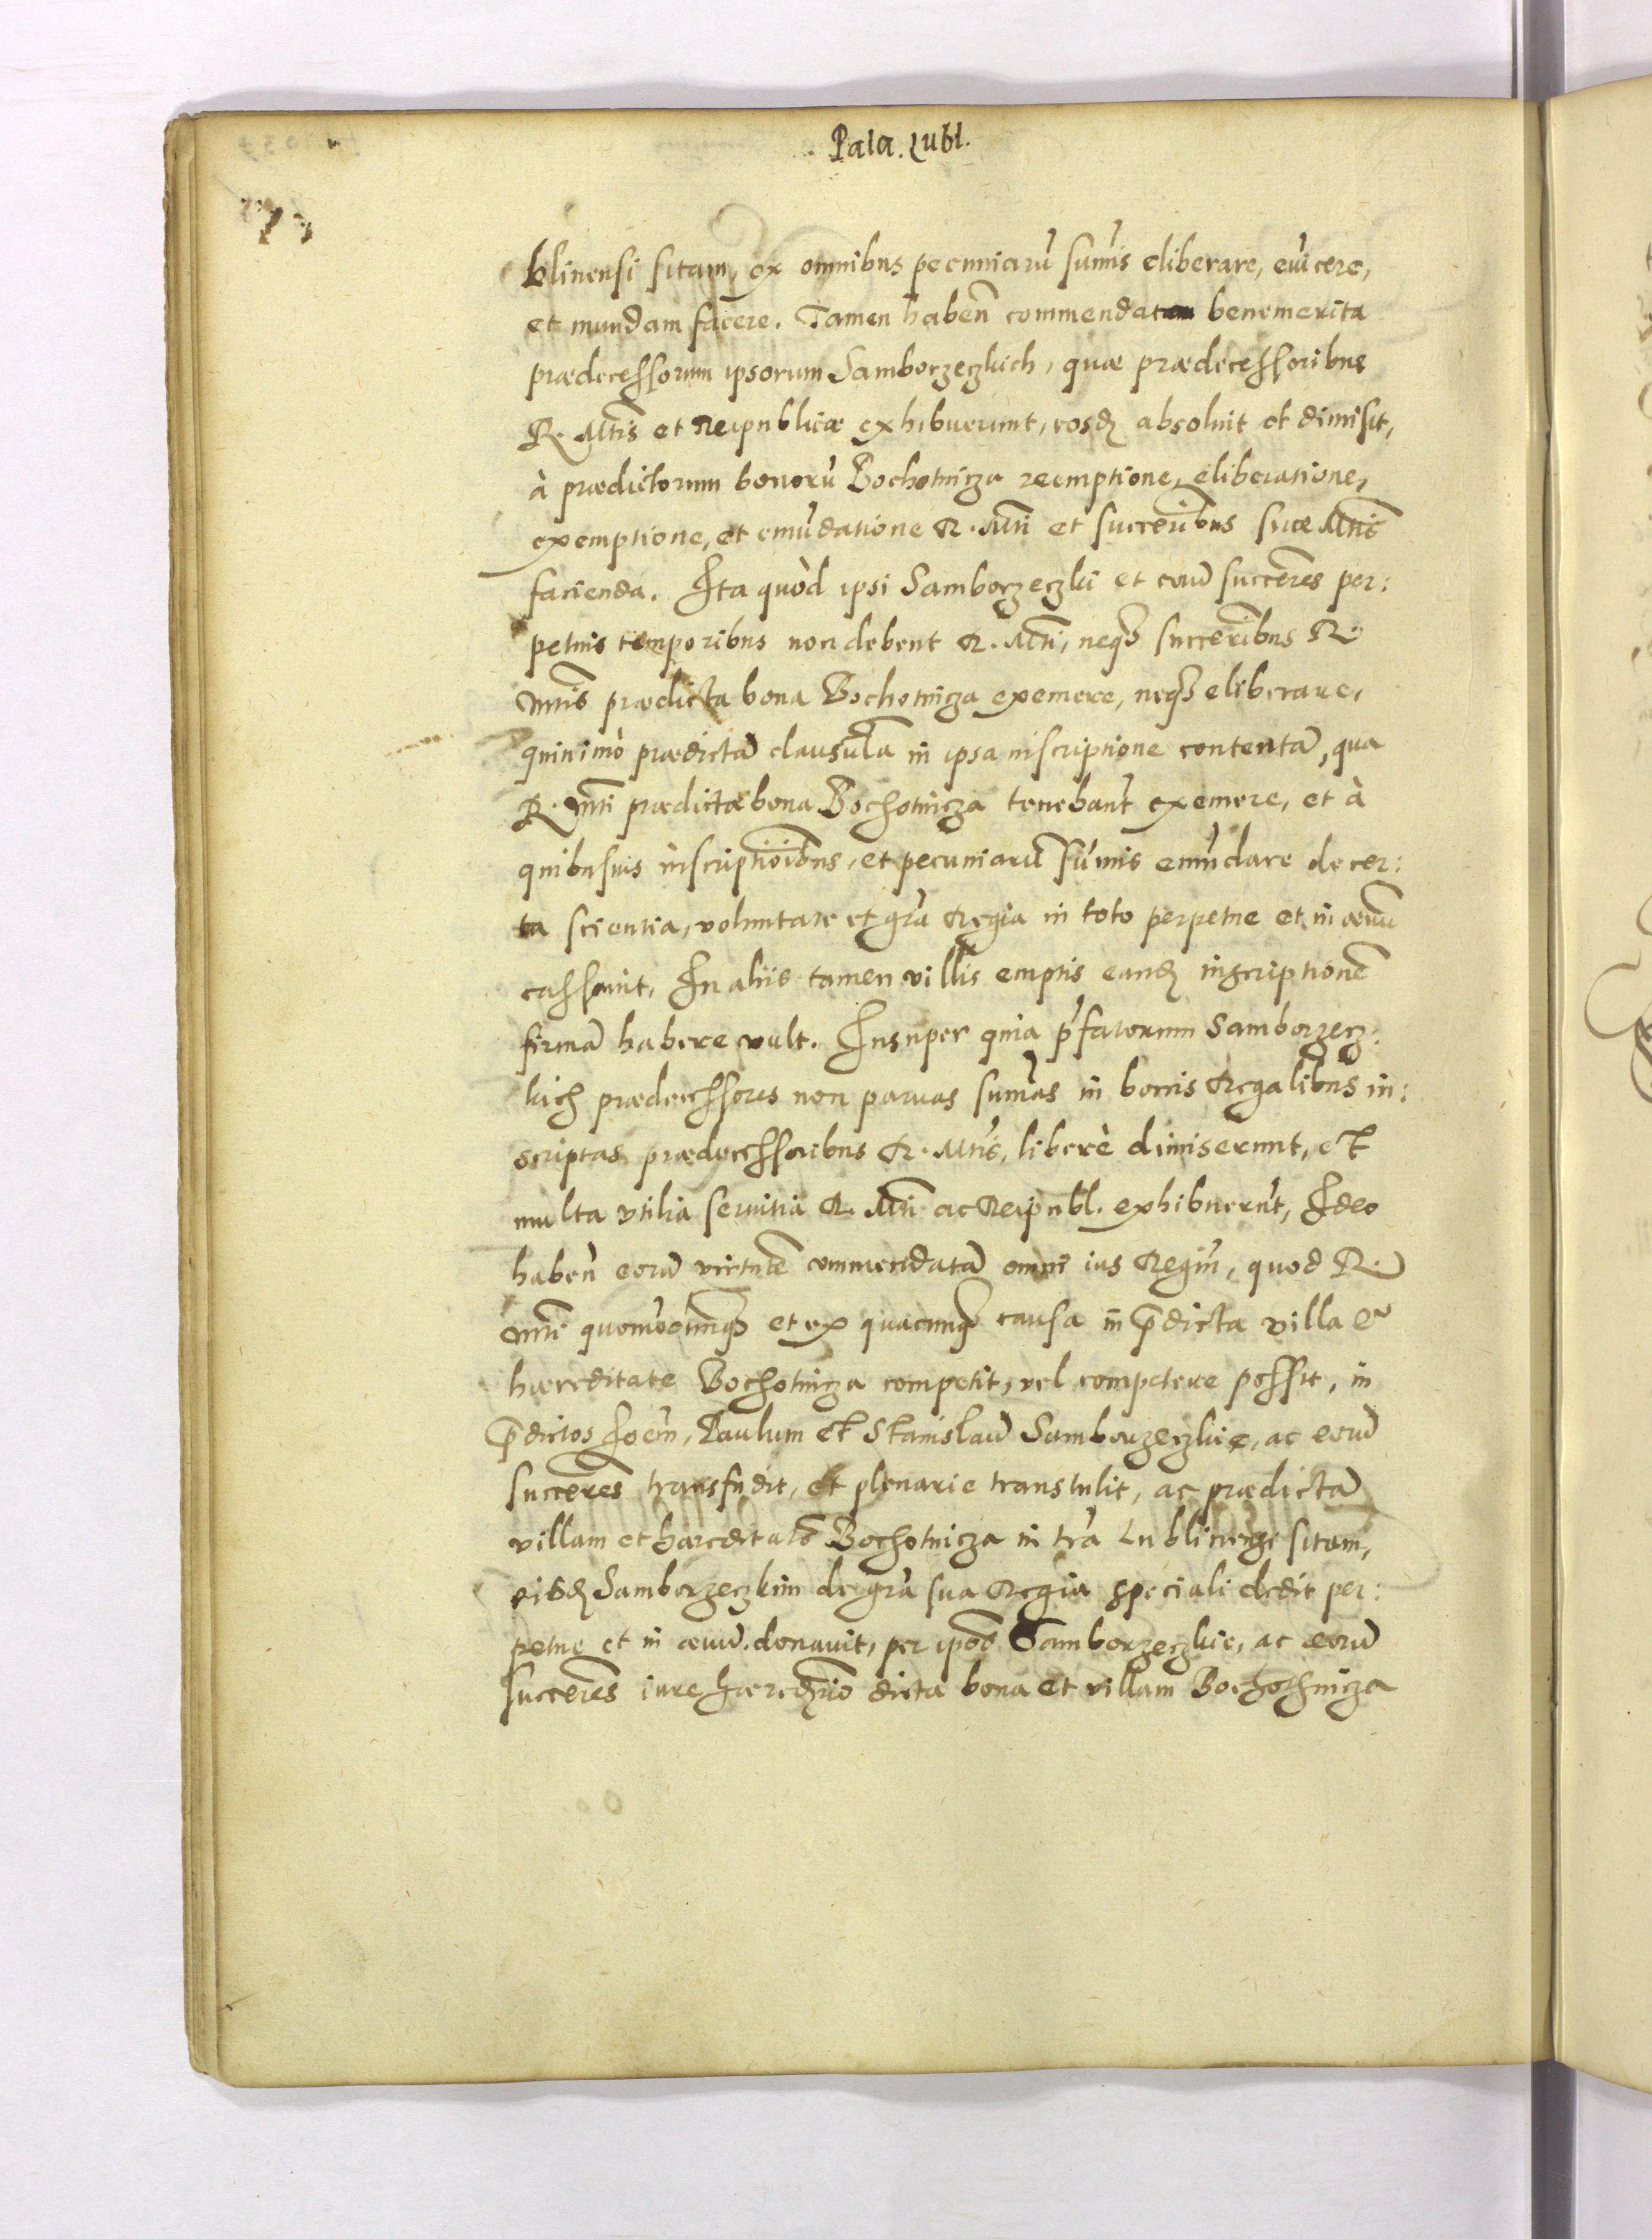 Pala. Lubl.
blinensi sitam, ex omnibus pecuniarũ sum̃is eliberare, euicere,
et mundam facere. Tamen habeñ commendatam benemerita
prædecessorum ipsorum Samborzeczkich, quæ prædecessoribus
R. Mtis et Reipublicæ exhibuerunt, eosdẽ absoluit et dimisit,
à prædictorum bonorũ Bochotnicza reemptione, eliberatione,
exemptione, et emũdatione R. Mti et succeribus suæ Mtis
facienda. Ita quòd ipsi Samborzeczki et eorũ succeres per:
petuis temporibus non debent R. Mti, neq3 succeribus R.
Mtis prædicta bona Bochotnicza exemere, neq3 eliberare,
quinimò prædictã clausulã in ipsa inscriptione contentã, qua
R. Mti prædicta bona Bochotnicza tenebant̃ exemere, et à
quibusuis inscriptioĩbus, et pecuniarũ sum̃is emũdare de cer:
ta scientia, voluntate et gra̾ Regia in toto perpetue et in æuũ
cassauit. In aliis tamen villis emptis eandẽ inscriptionẽ
firmã habere vult. Insuper quia p̾fatorum Samborzecz:
kich prædecessores non paruas sum̃as in bonis Regalibus in:
scriptas prædecessoribus R. Mtis, liberè dimiserunt, et
multa vtilia seruitia R. Mti ac Reipubl. exhibuerũt, Ideo
habeñ eorũ virtutẽ commendatã omne ius Regiũ, quod R.
Mti quomodocunq3 et ex quacunq3 causa in p̄dicta villa et
hæreditate Bochotnicza competit, vel competere possit, in
p̄dictos Ioem̃, Paulum et Stanislaũ Samborzeczkie, ac eorũ
succeres transfudit, et plenarie transtulit, ac prædictã
villam et hæreditatẽ Bochotnicza in tra̾ Lublinensi sitam,
eisdẽ Samborzeczkim de gra̾ sua Regia speciali dedit per:
petue et in æuũ donauit, per ipos̃ Samborzeczkie, ac eorũ
succeres iure hæredrio dicta bona et villam Bochothnicza